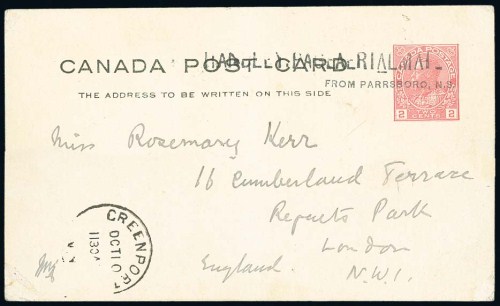 HANDLEY PAGE AERIAL MAIL
CANADA POST CARD
FROM PARRSBORO, N.S.
THE ADDRESS TO BE WRITTEN ON THIS SIDE
CANADA POSTAGE
2 CENTS 2
Miss Rosemary Kerr
16 Cumberland Terrace
Regents Park
London
England. N.W.1.
GREENPORT
OCT 10
1130A